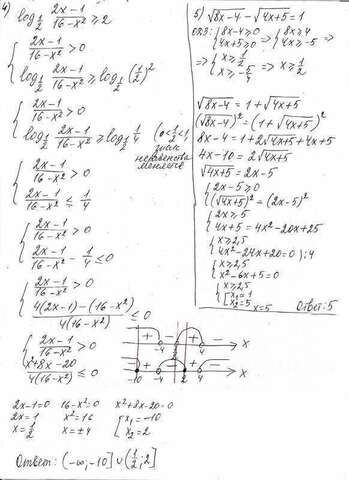 4) log_{1/2} (2x-1)/(16-x²) ≥ 2
{ (2x-1)/(16-x²) > 0
log_{1/2} (2x-1)/(16-x²) ≥ log_{1/2} (1/2)²
{ (2x-1)/(16-x²) > 0
log_{1/2} (2x-1)/(16-x²) ≥ log_{1/2} 1/4 (0<1/2<1, знак неравенства меняется
{ (2x-1)/(16-x²) > 0
(2x-1)/(16-x²) ≤ 1/4
{ (2x-1)/(16-x²) > 0
(2x-1)/(16-x²) - 1/4 ≤ 0
{ (2x-1)/(16-x²) > 0
(4(2x-1)-(16-x²))/(4(16-x²)) ≤ 0
{ (2x-1)/(16-x²) > 0
(x²+8x-20)/(4(16-x²)) ≤ 0
+ - + -
-4 1/2 4 x
- + - + -
-10 -4 2 4 x
2x-1=0 16-x²=0 x²+8x-20=0
2x=1 x²=16 [ x₁=-10
x=1/2 x=±4 x₂=2
Ответ: (-∞;-10] ∪ (1/2;2]
5) √8x-4 - √4x+5 = 1
ОДЗ: { 8x-4≥0 ⇒ { 8x≥4
4x+5≥0 4x≥-5 ⇒
⇒ { x≥1/2
x≥-5/4 ⇒ x≥1/2
√8x-4 = 1+√4x+5
(√8x-4)² = (1+√4x+5)²
8x-4 = 1+2√4x+5+4x+5
4x-10 = 2√4x+5
√4x+5 = 2x-5
{ 2x-5≥0
(√4x+5)² = (2x-5)²
{ 2x≥5
4x+5 = 4x²-20x+25
{ x≥2,5
4x²-24x+20=0 |:4
{ x≥2,5
x²-6x+5=0
{ x≥2,5
[ x₁=1
x₂=5 x=5 Ответ: 5